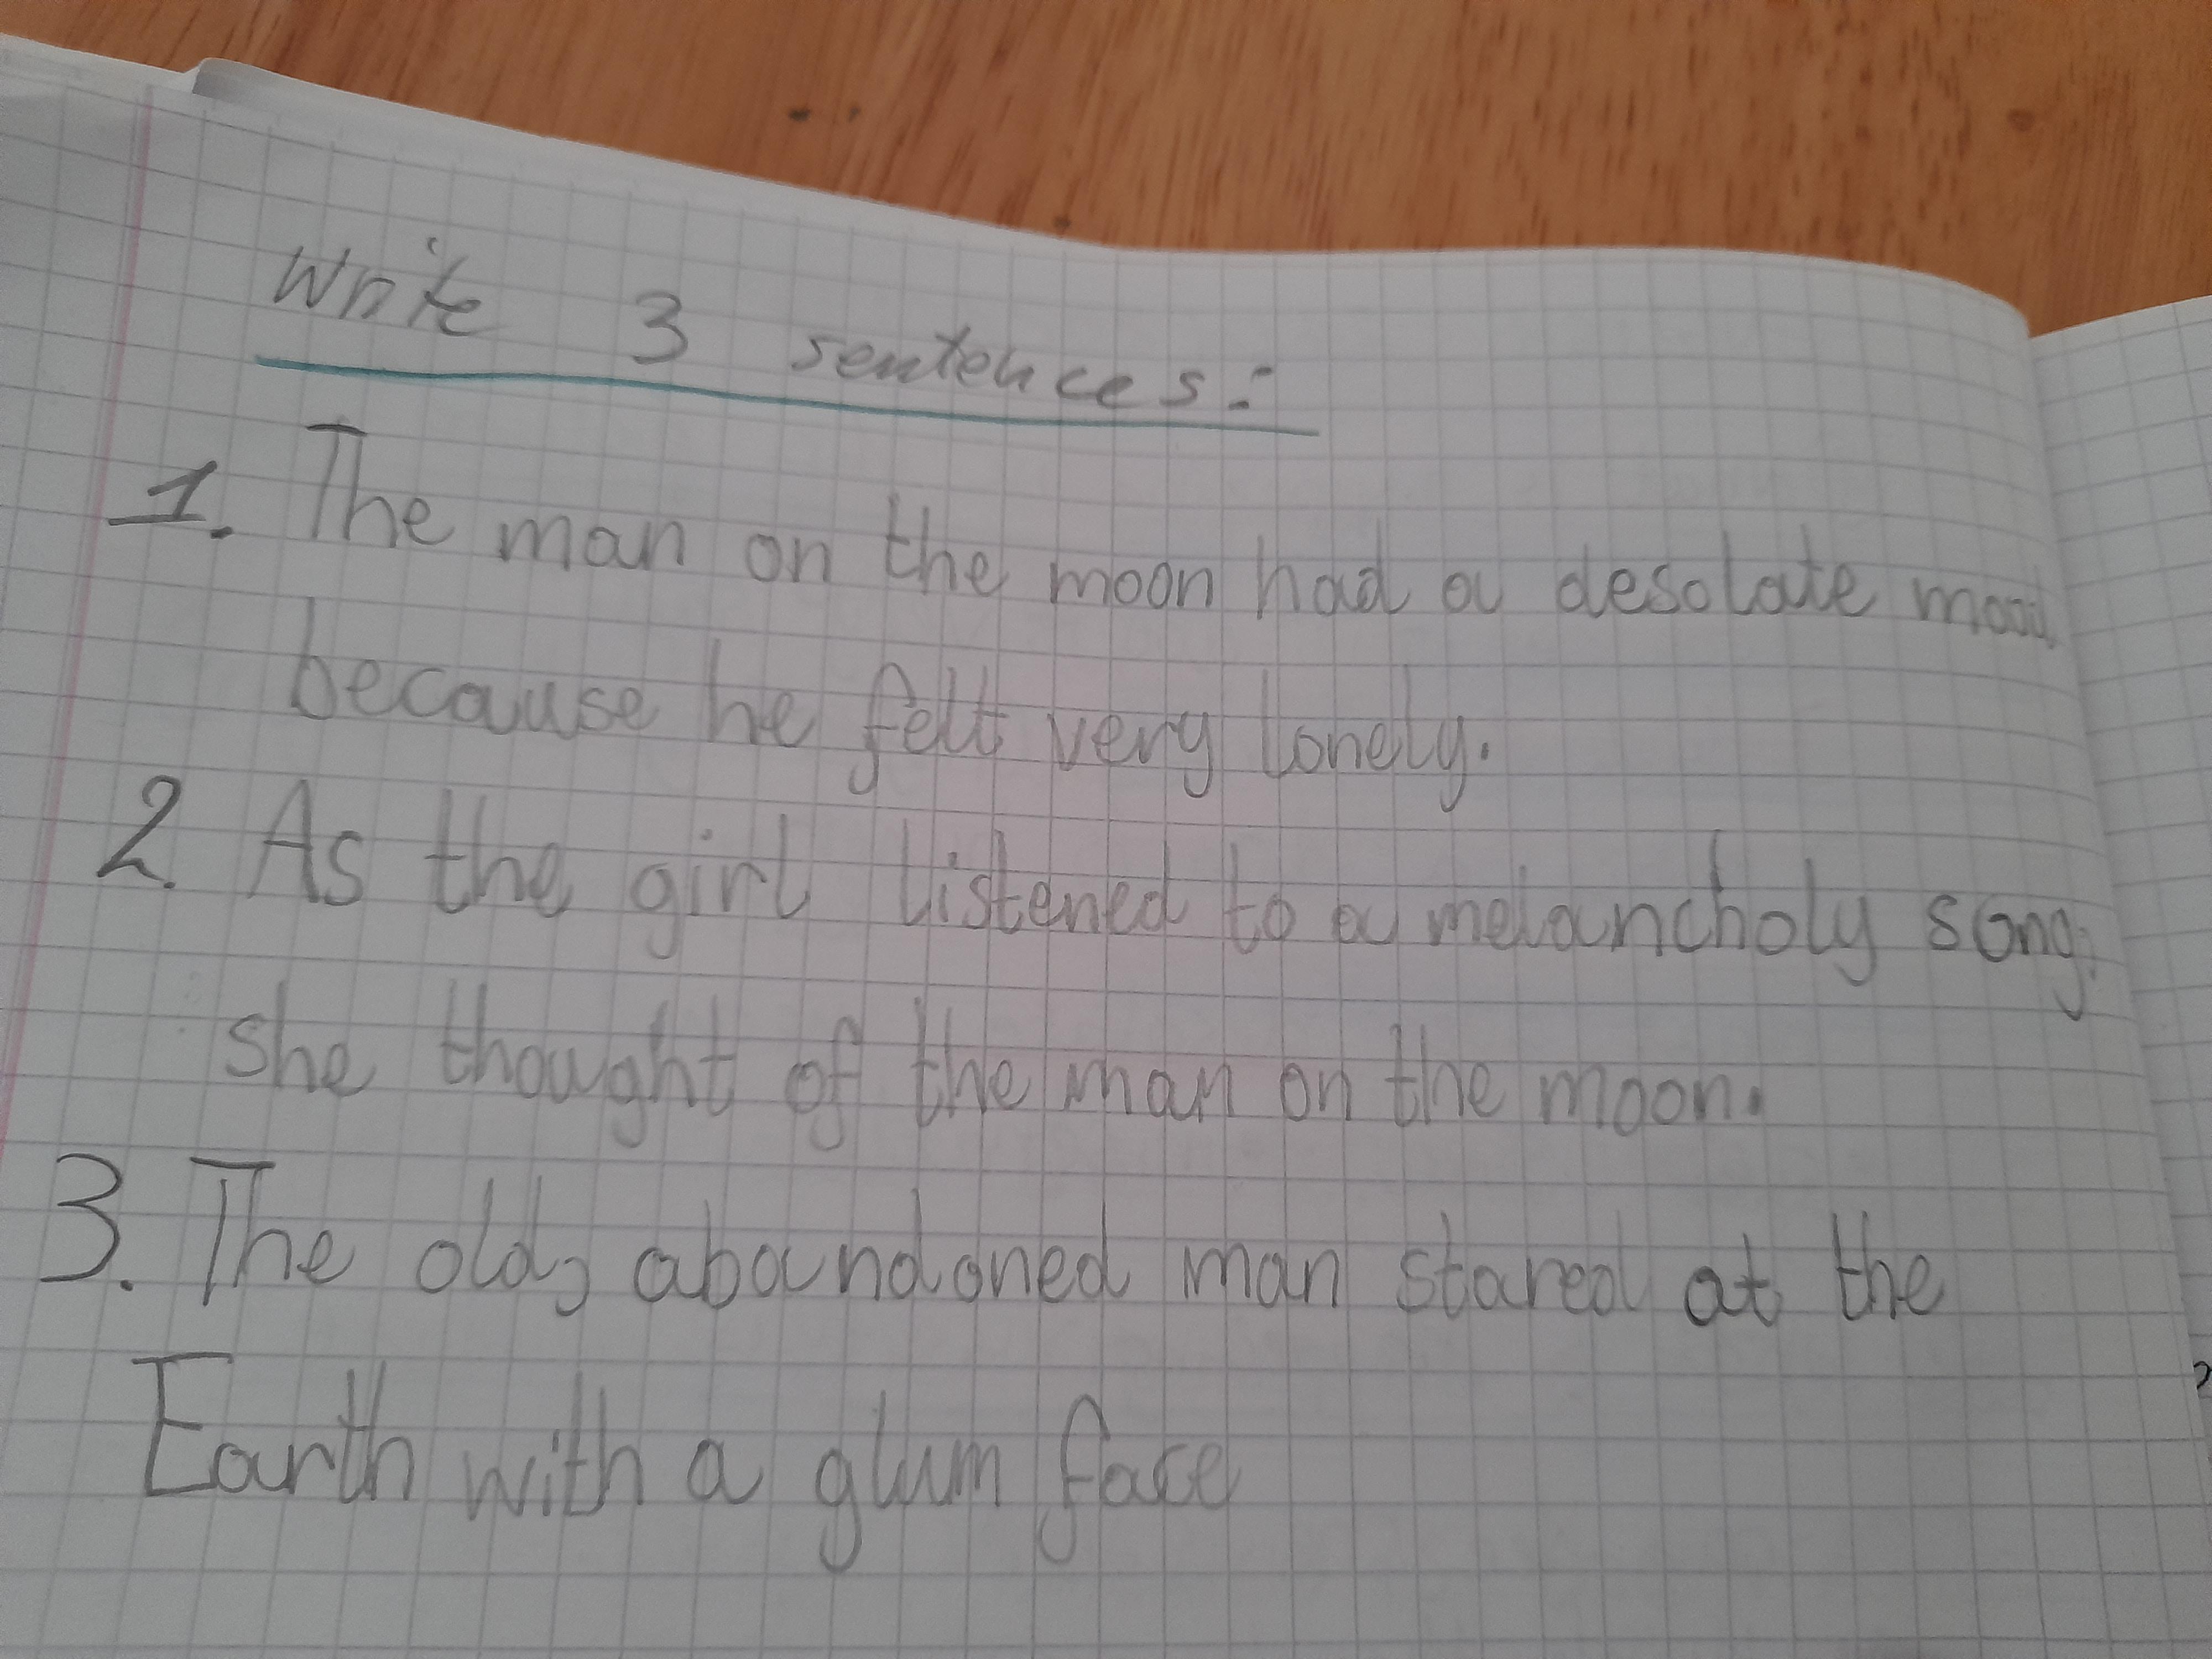 Write 3 sentences:
1. The man on the moon had a desolate mood
because he felt very lonely.
2. As the girl listened to a melancholy song,
she thought of the man on the moon.
3. The old, aboundoned man stared at the
Earth with a glum face